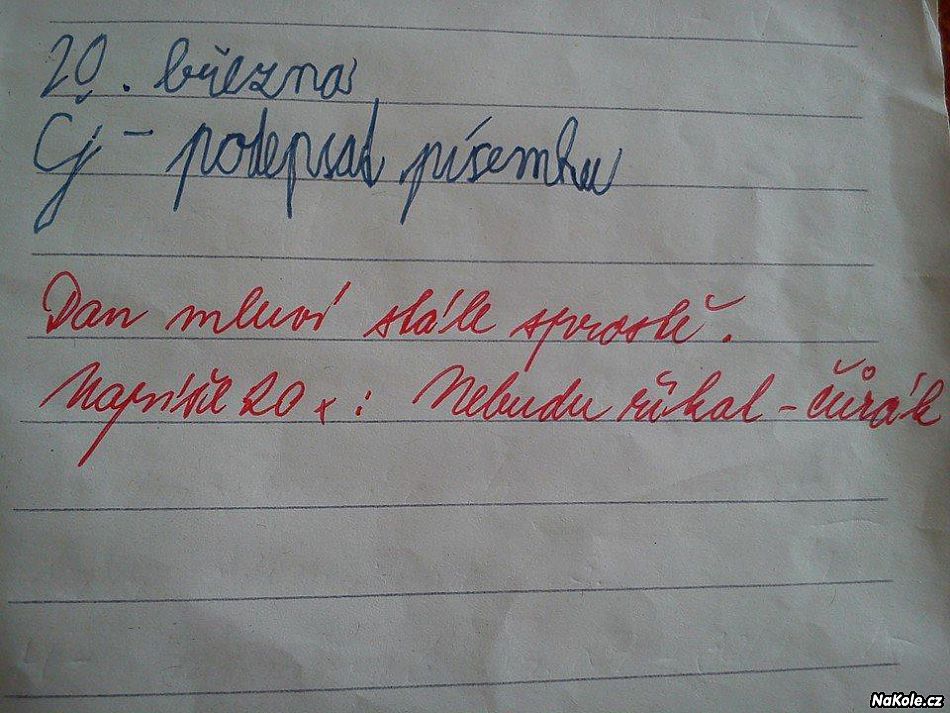 20. března
Čj - podepsat písemku
Dan mluví stále sprostě.
Napíše 20 x: Nebudu říkat - čůrák
NaKole.cz